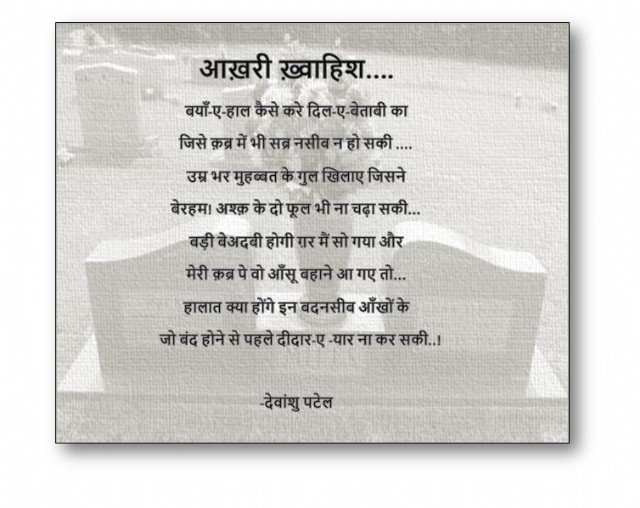 आख़री ख़्वाहिश....
बयाँ-ए-हाल कैसे करे दिल-ए-बेताबी का
जिसे क़ब्र में भी सब्र नसीब न हो सकी ....
उम्र भर मुहब्बत के गुल खिलाए जिसने
बेरहम! अश्क़ के दो फूल भी ना चढ़ा सकी...
बड़ी बेअदबी होगी ग़र मैं सो गया और
मेरी क़ब्र पे वो आँसू बहाने आ गए तो...
हालात क्या होंगे इन बदनसीब आँखों के
जो बंद होने से पहले दीदार-ए -यार ना कर सकी..!
-देवांशु पटेल